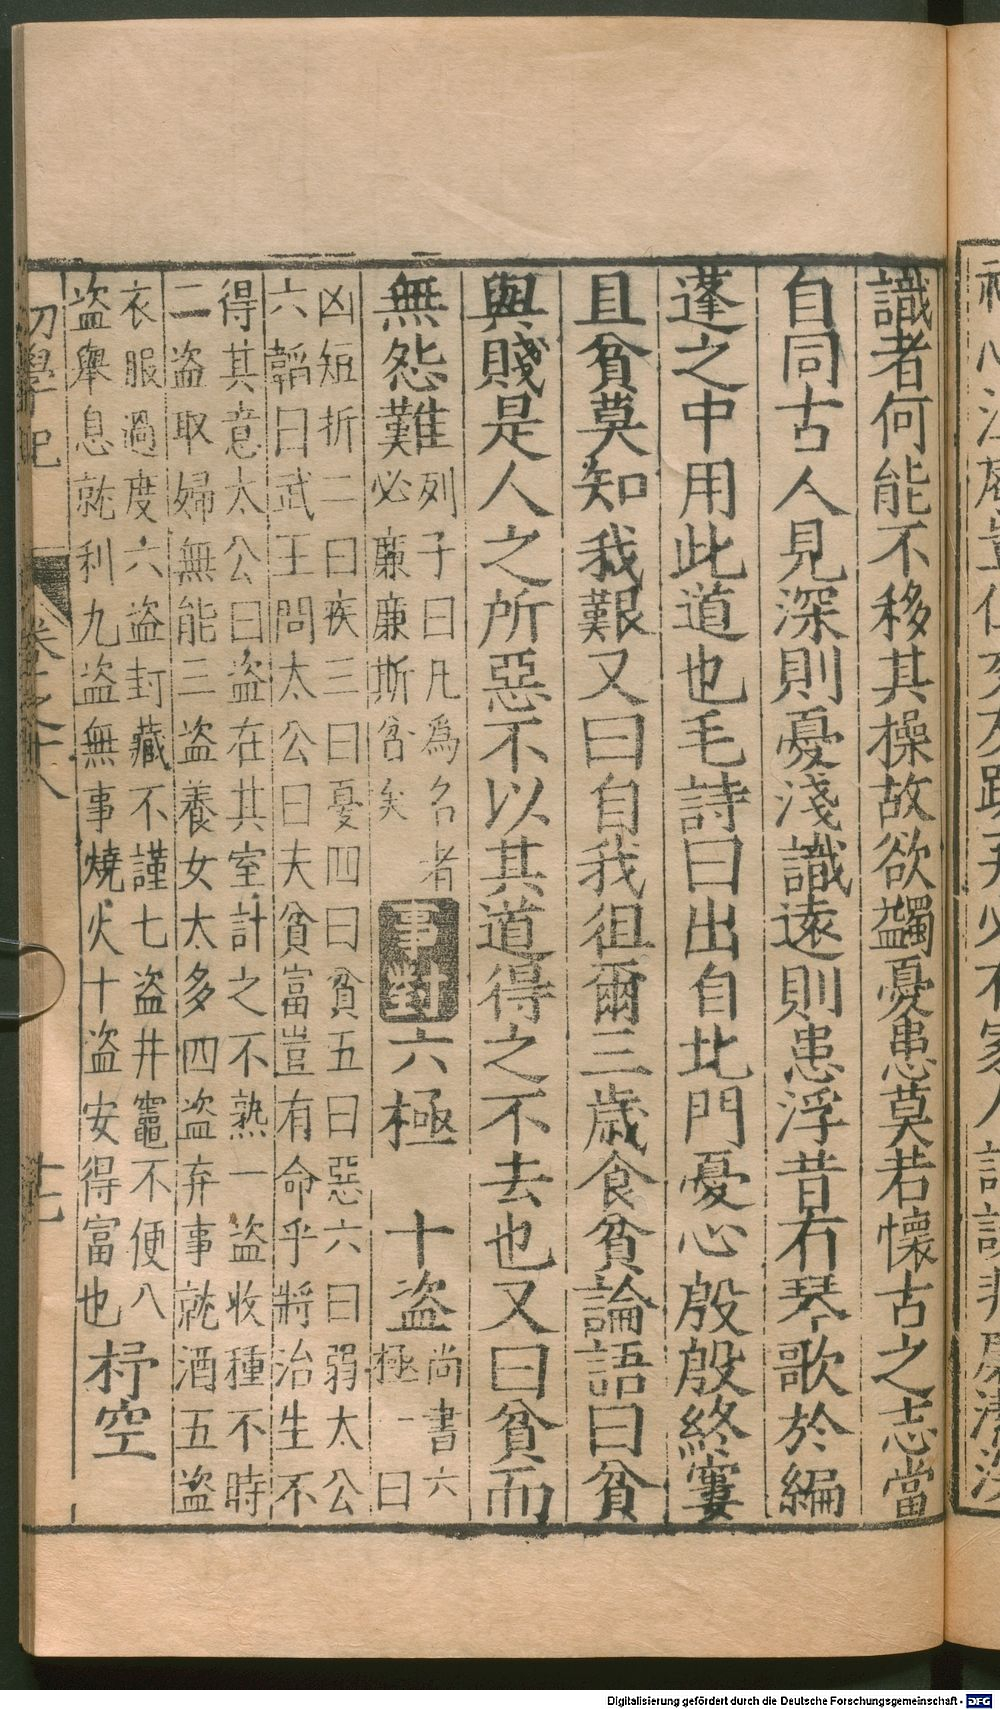 識者何能不移其操故欲蠲憂患莫若懷古之志當
自同古人見深則憂淺識遠則患浮昔有琴歌於編
蓬之中用此道也毛詩曰出自北門憂心殷殷終窶
且貧莫知我艱又曰自我徂爾三歳食貧論語曰貧
與賤是人之所惡不以其道得之不去也又曰貧而
無怨難
列子曰凡爲名者
必廉廉斯貧矣
事對
六極 十盜
尚書六
極一曰
凶短折二曰疾三曰憂四曰貧五曰惡六曰弱太公
六韜曰武王問太公曰夫貧富豈有命乎將治生不
得其意太公曰盜在其室計之不熟一盜收種不時
二盜取婦無能三盜養女太多四盜弃事就酒五盜
衣服過度六盜封藏不謹七盜井竈不便八
盜舉息就利九盜無事燒火十盜安得富也
杼空
初學記 卷之十八 廿七
Digitalisierung gefördert durch die Deutsche Forschungsgemeinschaft - DFG